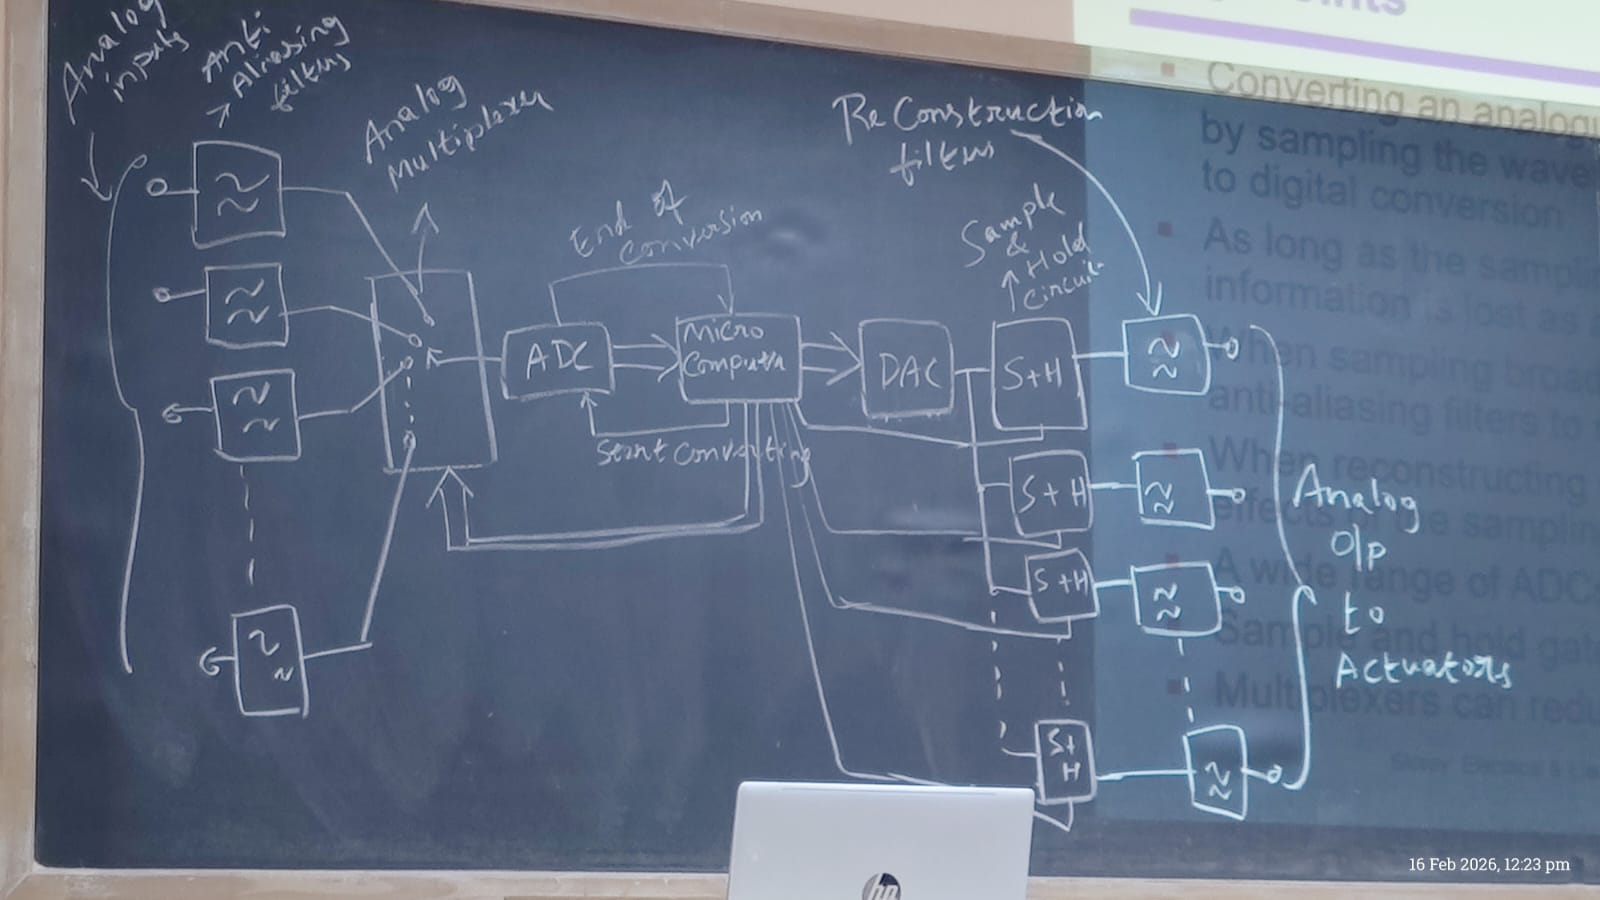 Analog
inputs
Anti
Aliasing
filters
Analog
Multiplexer
End of
Conversion
ADC
Micro
Computer
Start Converting
DAC
Re Construction
filters
Sample
&
Hold
Circuit
S+H
S+H
S+H
S+
H
Analog
O/P
to
Actuators
Converting an analogu
by sampling the wave
to digital conversion
As long as the sampli
information is lost as a
When sampling broad
anti-aliasing filters to
When reconstructing
effects of the samplin
A wide range of ADCs
Sample and hold gat
Multiplexers can redu
hp
16 Feb 2026, 12:23 pm